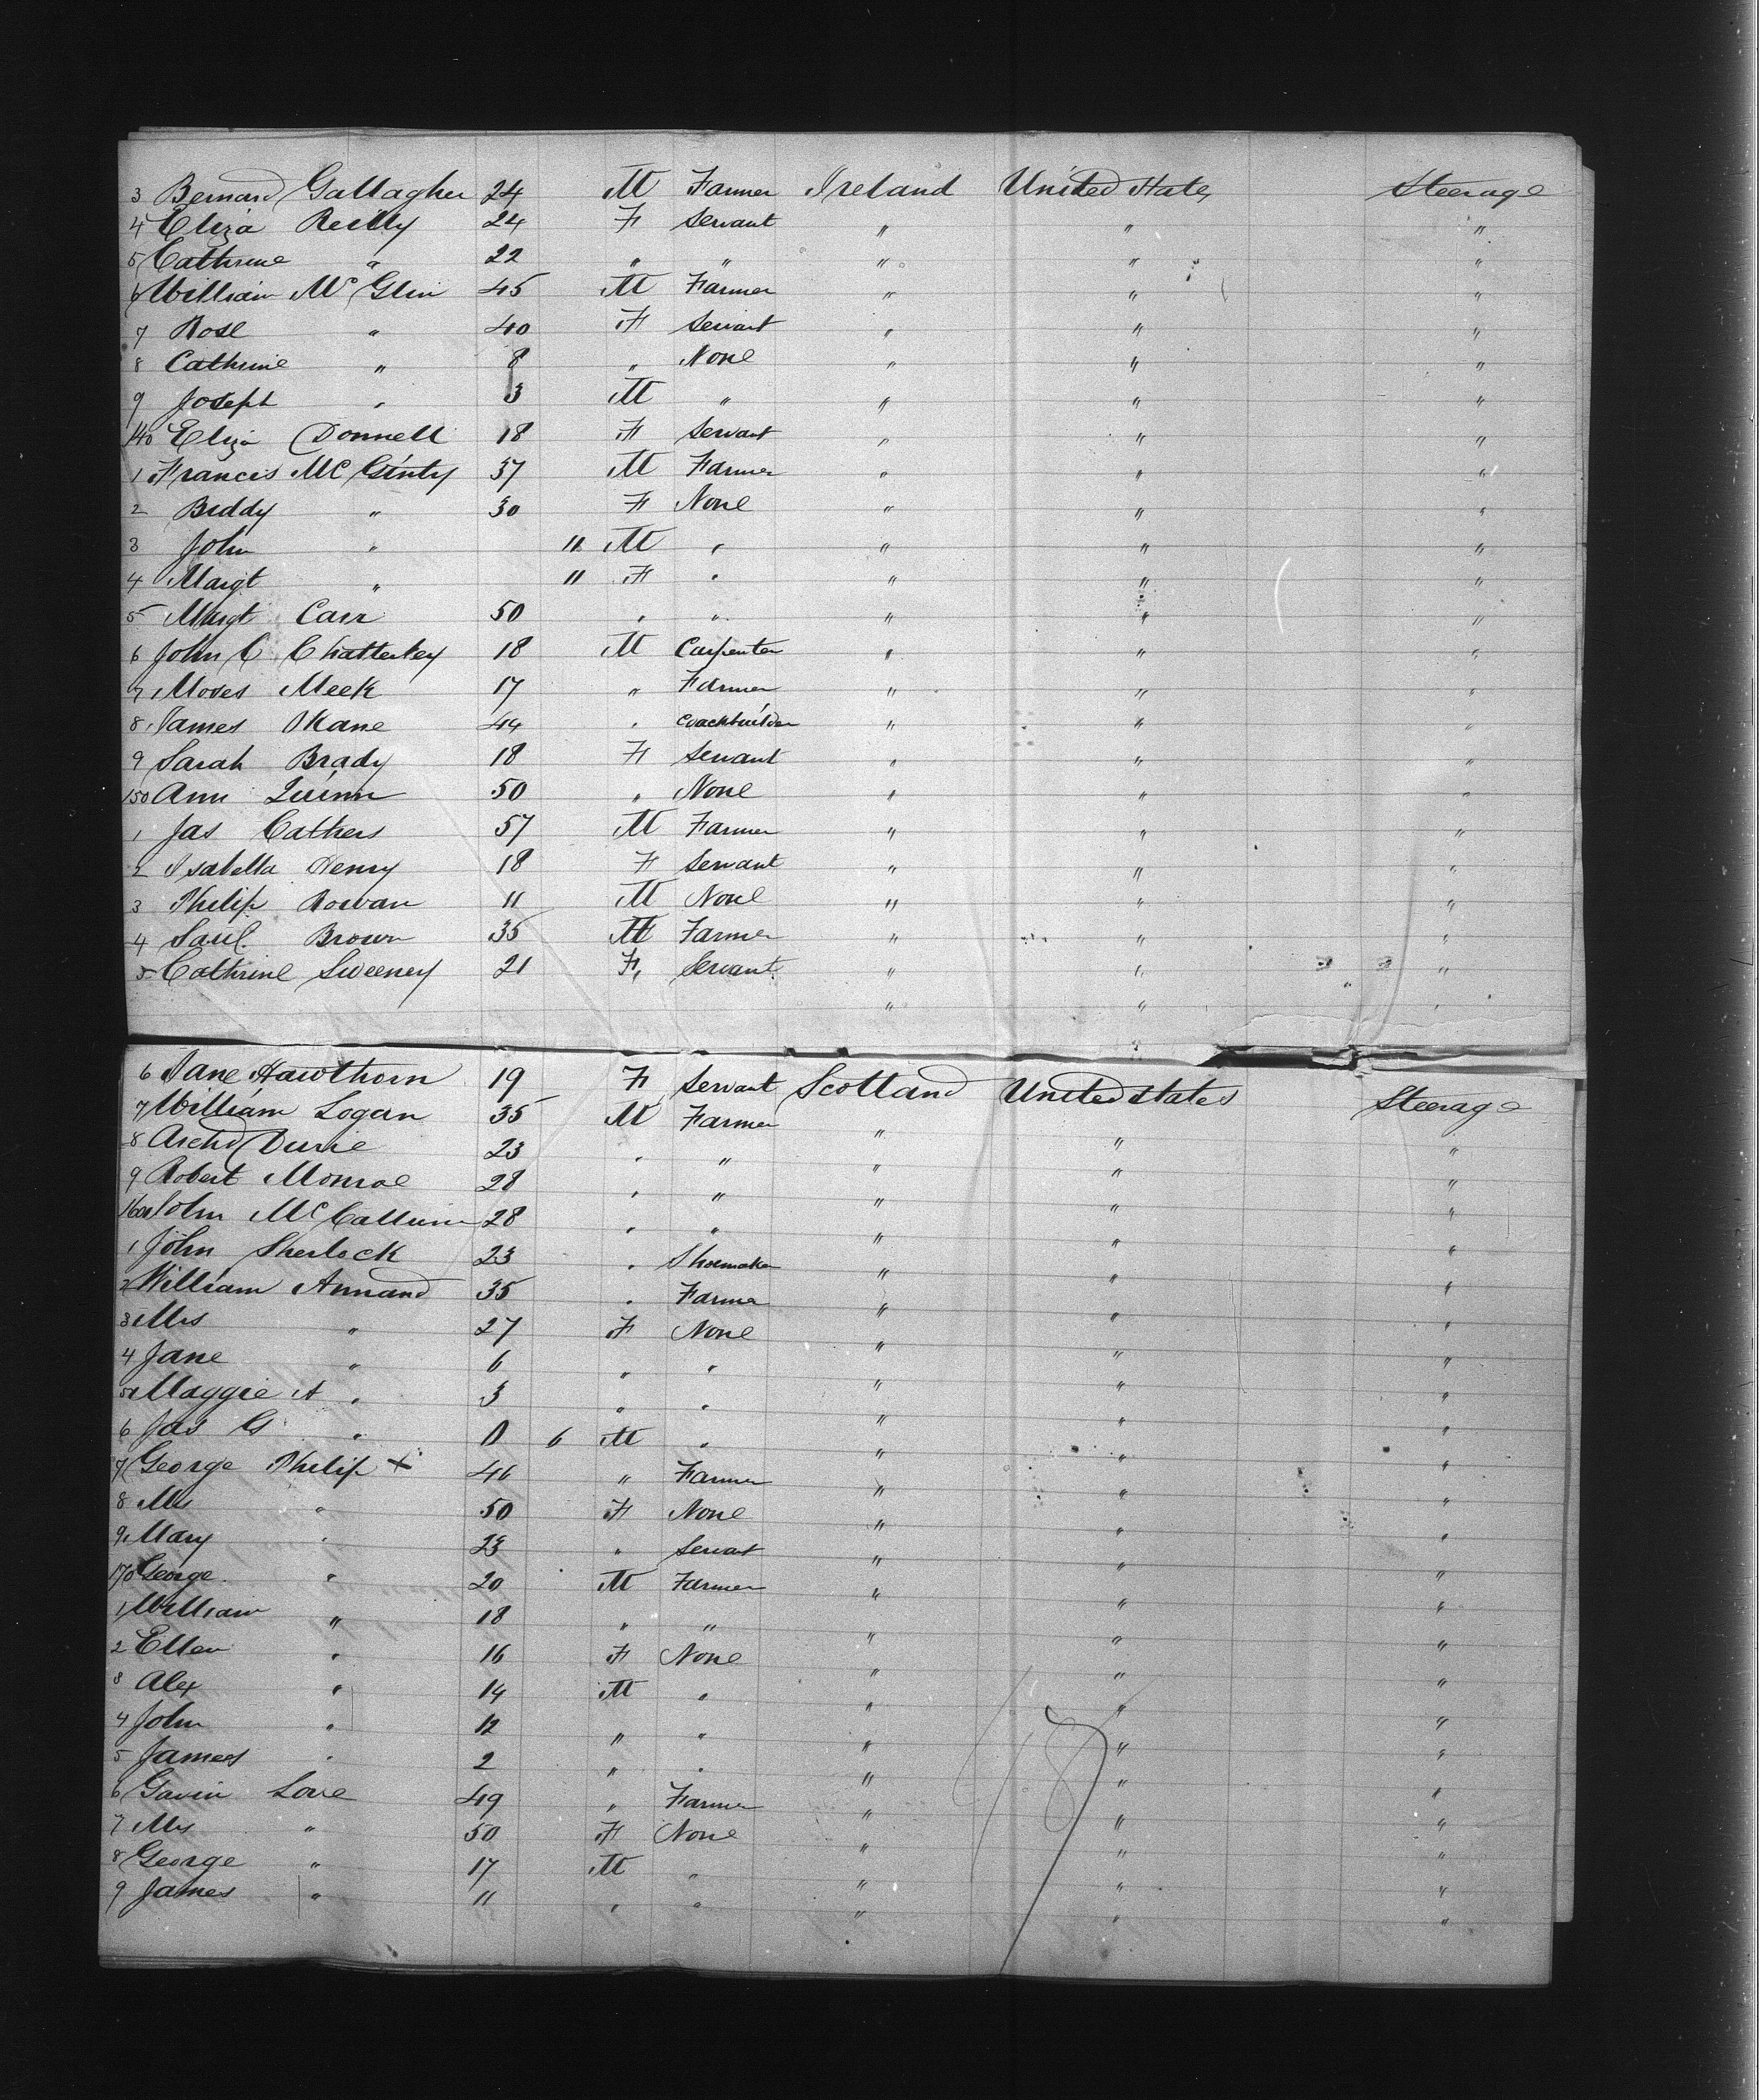 3 Bernard Gallagher 24 M Farmer Ireland United States Steerage
4 Eliza Reilly 24 F Servant " " "
5 Cathrine " 22 " " " " "
6 William McGlin 45 M Farmer " " "
7 Rose " 40 F Servant " " "
8 Cathrine " 8 " None " " "
9 Joseph " 3 M " " " "
140 Eliza Donnell 18 F Servant " " "
1 Francis McGinty 37 M Farmer " " "
2 Biddy " 30 F None " " "
3 John " 11 M " " " "
4 Margt " 11 F " " " "
5 Margt Carr 50 " " " " "
6 John C Chatterley 18 M Carpenter " " "
7 Moses Meek 17 " Farmer " " "
8 James OKane 44 " Coachbuilder " " "
9 Sarah Brady 18 F Servant " " "
150 Ann Quinn 50 " None " " "
1 Jas Cathers 57 M Farmer " " "
2 Isabella Henry 18 F Servant " " "
3 Philip Rowan 11 M None " " "
4 Saul. Brown 35 M Farmer " " "
5 Cathrine Sweeney 21 F Servant " " "
" " "
6 Jane Hawthorn 19 F Servant Scotland United States Steerage
7 William Logan 35 M Farmer " " "
8 Archd 23 " " " " "
9 Robert Monroe 28 " " " " "
160 John McCallum 28 " " " " "
1 John Sherlock 23 " Shoemaker " " "
2 William Annand 35 " Farmer " " "
3 Mrs " 27 F None " " "
4 Jane " 6 " " " " "
5 Maggie A " 3 " " " " "
6 Jas G " 0 6 M " " " "
7 George Philip X 46 " Farmer " " "
8 Mrs " 50 F None " " "
9 Mary " 23 " Servant " " "
170 George " 20 M Farmer " " "
1 William " 18 " " " " "
2 Ellen " 16 F None " " "
3 Alex " 14 M " " " "
4 John " 12 " " " " "
5 James " 2 " " " " "
6 Gavin Love 49 " Farmer " " "
7 Mrs " 50 F None " " "
8 George " 17 M " " " "
9 James " 11 " " " " "